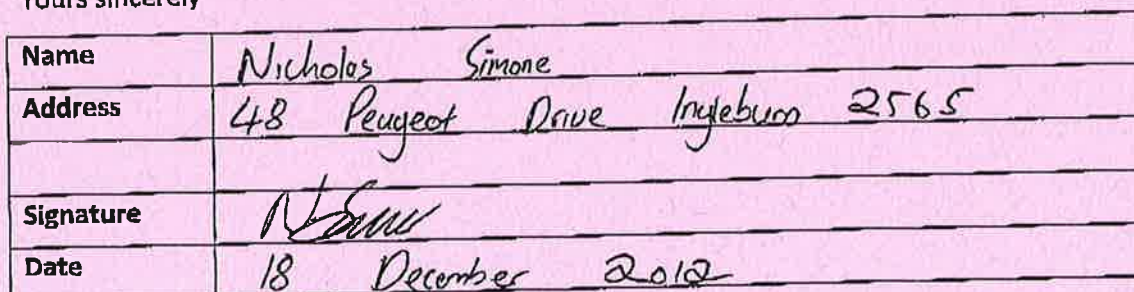 Yours sincerely
Name Nicholas Simone
Address 48 Peugeot Drive Ingleburn 2565
Signature
Date 18 December 2012